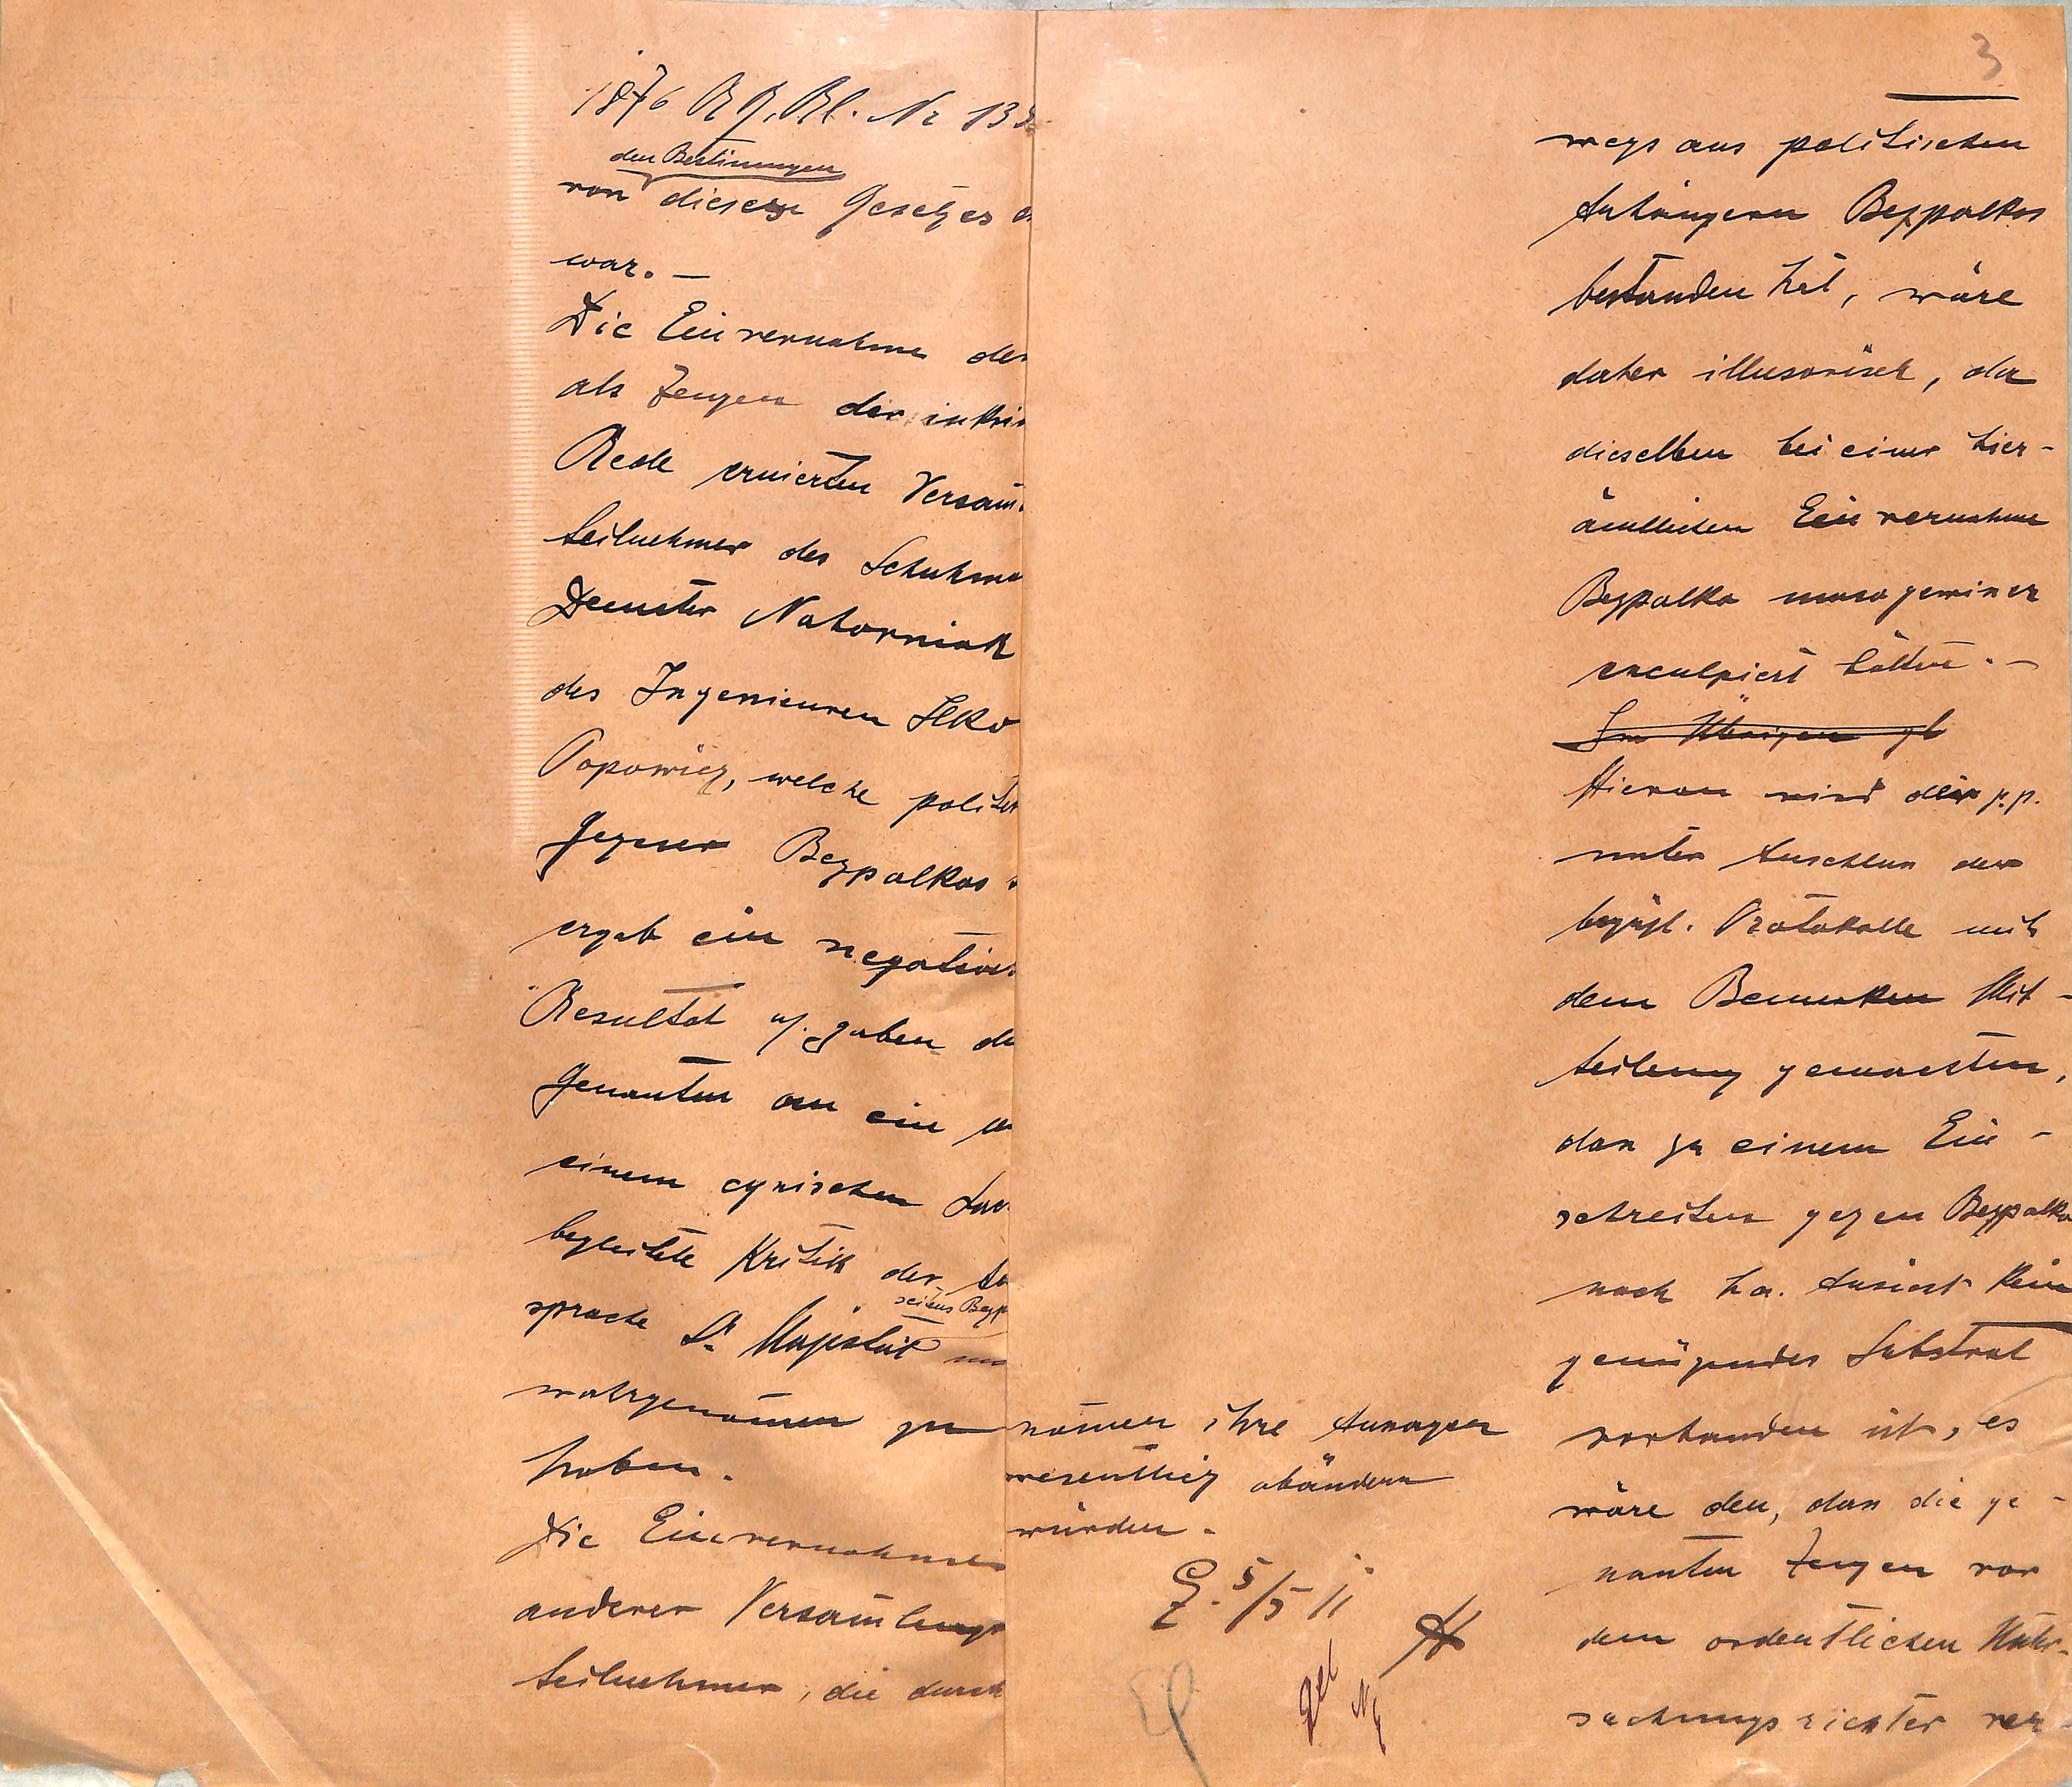 3
1876 R. G. Bl. Nr 135
den Bestim̄ungen
von dieses Gesetzes
war. —
Die Einvernahme der
als Zeugen der inkri
Rede eruierten Versam̄
teilnehmer des Schuhma
Demeter Nahorniak
des Ingenieuren Ilko
Popowicz, welche polit
Gegner Bezpalkos
ergab ein negatives
Resultat u. gaben d
Genan̄ten an ein
einem cynischen Lac
begleitete Kritik der
seitens Bezp
sprache Sr Majestät
wahrgenom̄en zu
haben.
Die Einvernahme
anderer Versam̄lungs
teilnehmer, die durch
wegs aus politischen
Anhängern Bezpalkos
bestanden hat, wäre
daher illusorisch, da
dieselben bei einer hier-
ämtlichen Einvernahme
Bezpalko
exculpiert hätten. —
Im Übrigen
Hievon wird der p.p.
unter Anschluss der
bezügl. Protokolle mit
dem Bemerken Mit-
teilung gemacht,
dass zu einem Ein-
schreiten gegen Bezpalko
nach h.a. Ansicht kein
genügendes Substrat
vorhanden ist, es
wäre den, dass die ge-
nan̄ten Zeugen vor
dem ordentlichen Unter-
suchungsrichter ver
nom̄en ihre Aussagen
wesentlich abändern
würden.
5/5 11